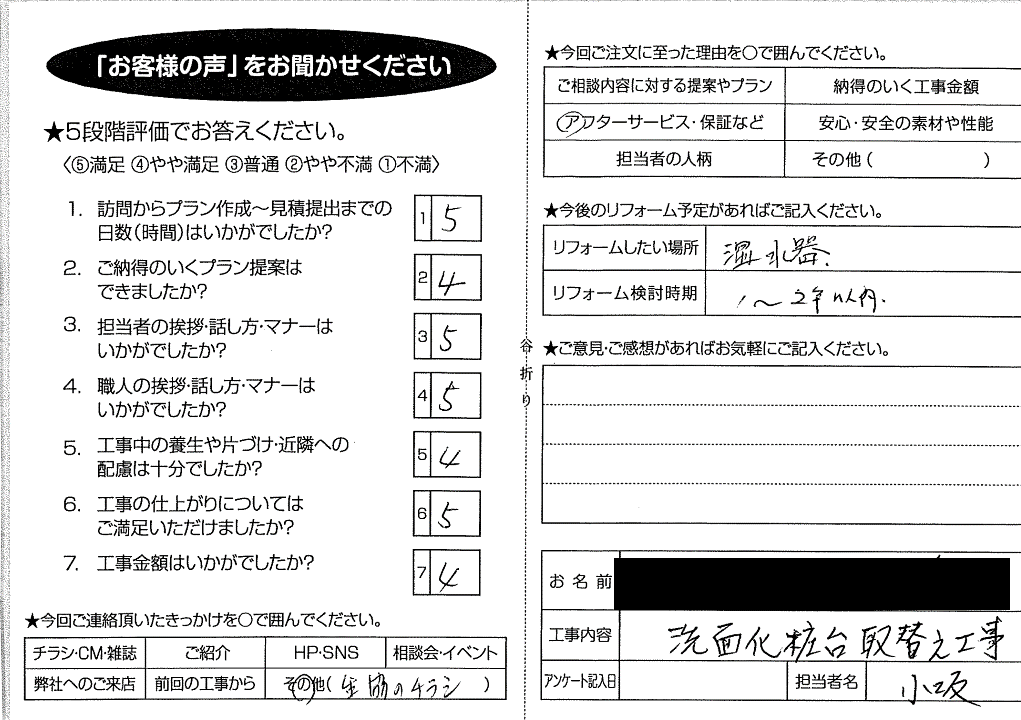 「お客様の声」をお聞かせください
★5段階評価でお答えください。
〈⑤満足 ④やや満足 ③普通 ②やや不満 ①不満〉
1. 訪問からプラン作成～見積提出までの
日数(時間)はいかがでしたか?
1 5
2. ご納得のいくプラン提案は
できましたか?
2 4
3. 担当者の挨拶・話し方・マナーは
いかがでしたか?
3 5
4. 職人の挨拶・話し方・マナーは
いかがでしたか?
4 5
5. 工事中の養生や片づけ・近隣への
配慮は十分でしたか?
5 4
6. 工事の仕上がりについては
ご満足いただけましたか?
6 5
7. 工事金額はいかがでしたか?
7 4
★今回ご連絡頂いたきっかけを○で囲んでください。
チラシ・CM・雑誌 ご紹介 HP・SNS 相談会・イベント
弊社へのご来店 前回の工事から その他( 生協のチラシ )
谷折り
★今回ご注文に至った理由を○で囲んでください。
ご相談内容に対する提案やプラン 納得のいく工事金額
アフターサービス・保証など 安心・安全の素材や性能
担当者の人柄 その他( )
★今後のリフォーム予定があればご記入ください。
リフォームしたい場所 温水器.
リフォーム検討時期 1～2年以内.
★ご意見・ご感想があればお気軽にご記入ください。
お名前
工事内容 洗面化粧台取替え工事
アンケート記入日 担当者名 小坂